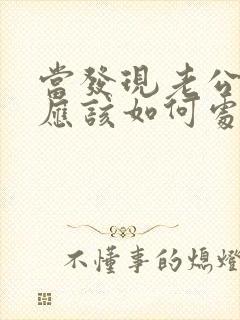 當發現老公
應該如何處
不懂事的熄燈